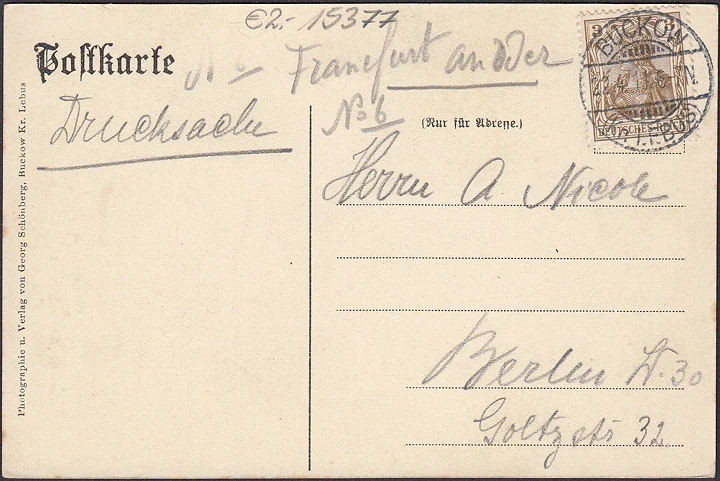 €2.- 15377
Postkarte
No 6 Francfurt an d Oder
Drucksache
No 6
(Nur für Adresse.)
Herrn A Nicole
Berlin W. 30
Goltzstr 32
3 3
DEUTSCHES REICH
BUCKOW
(Kr. LEBUS)
Photographie u. Verlag von Georg Schönberg, Buckow Kr. Lebus